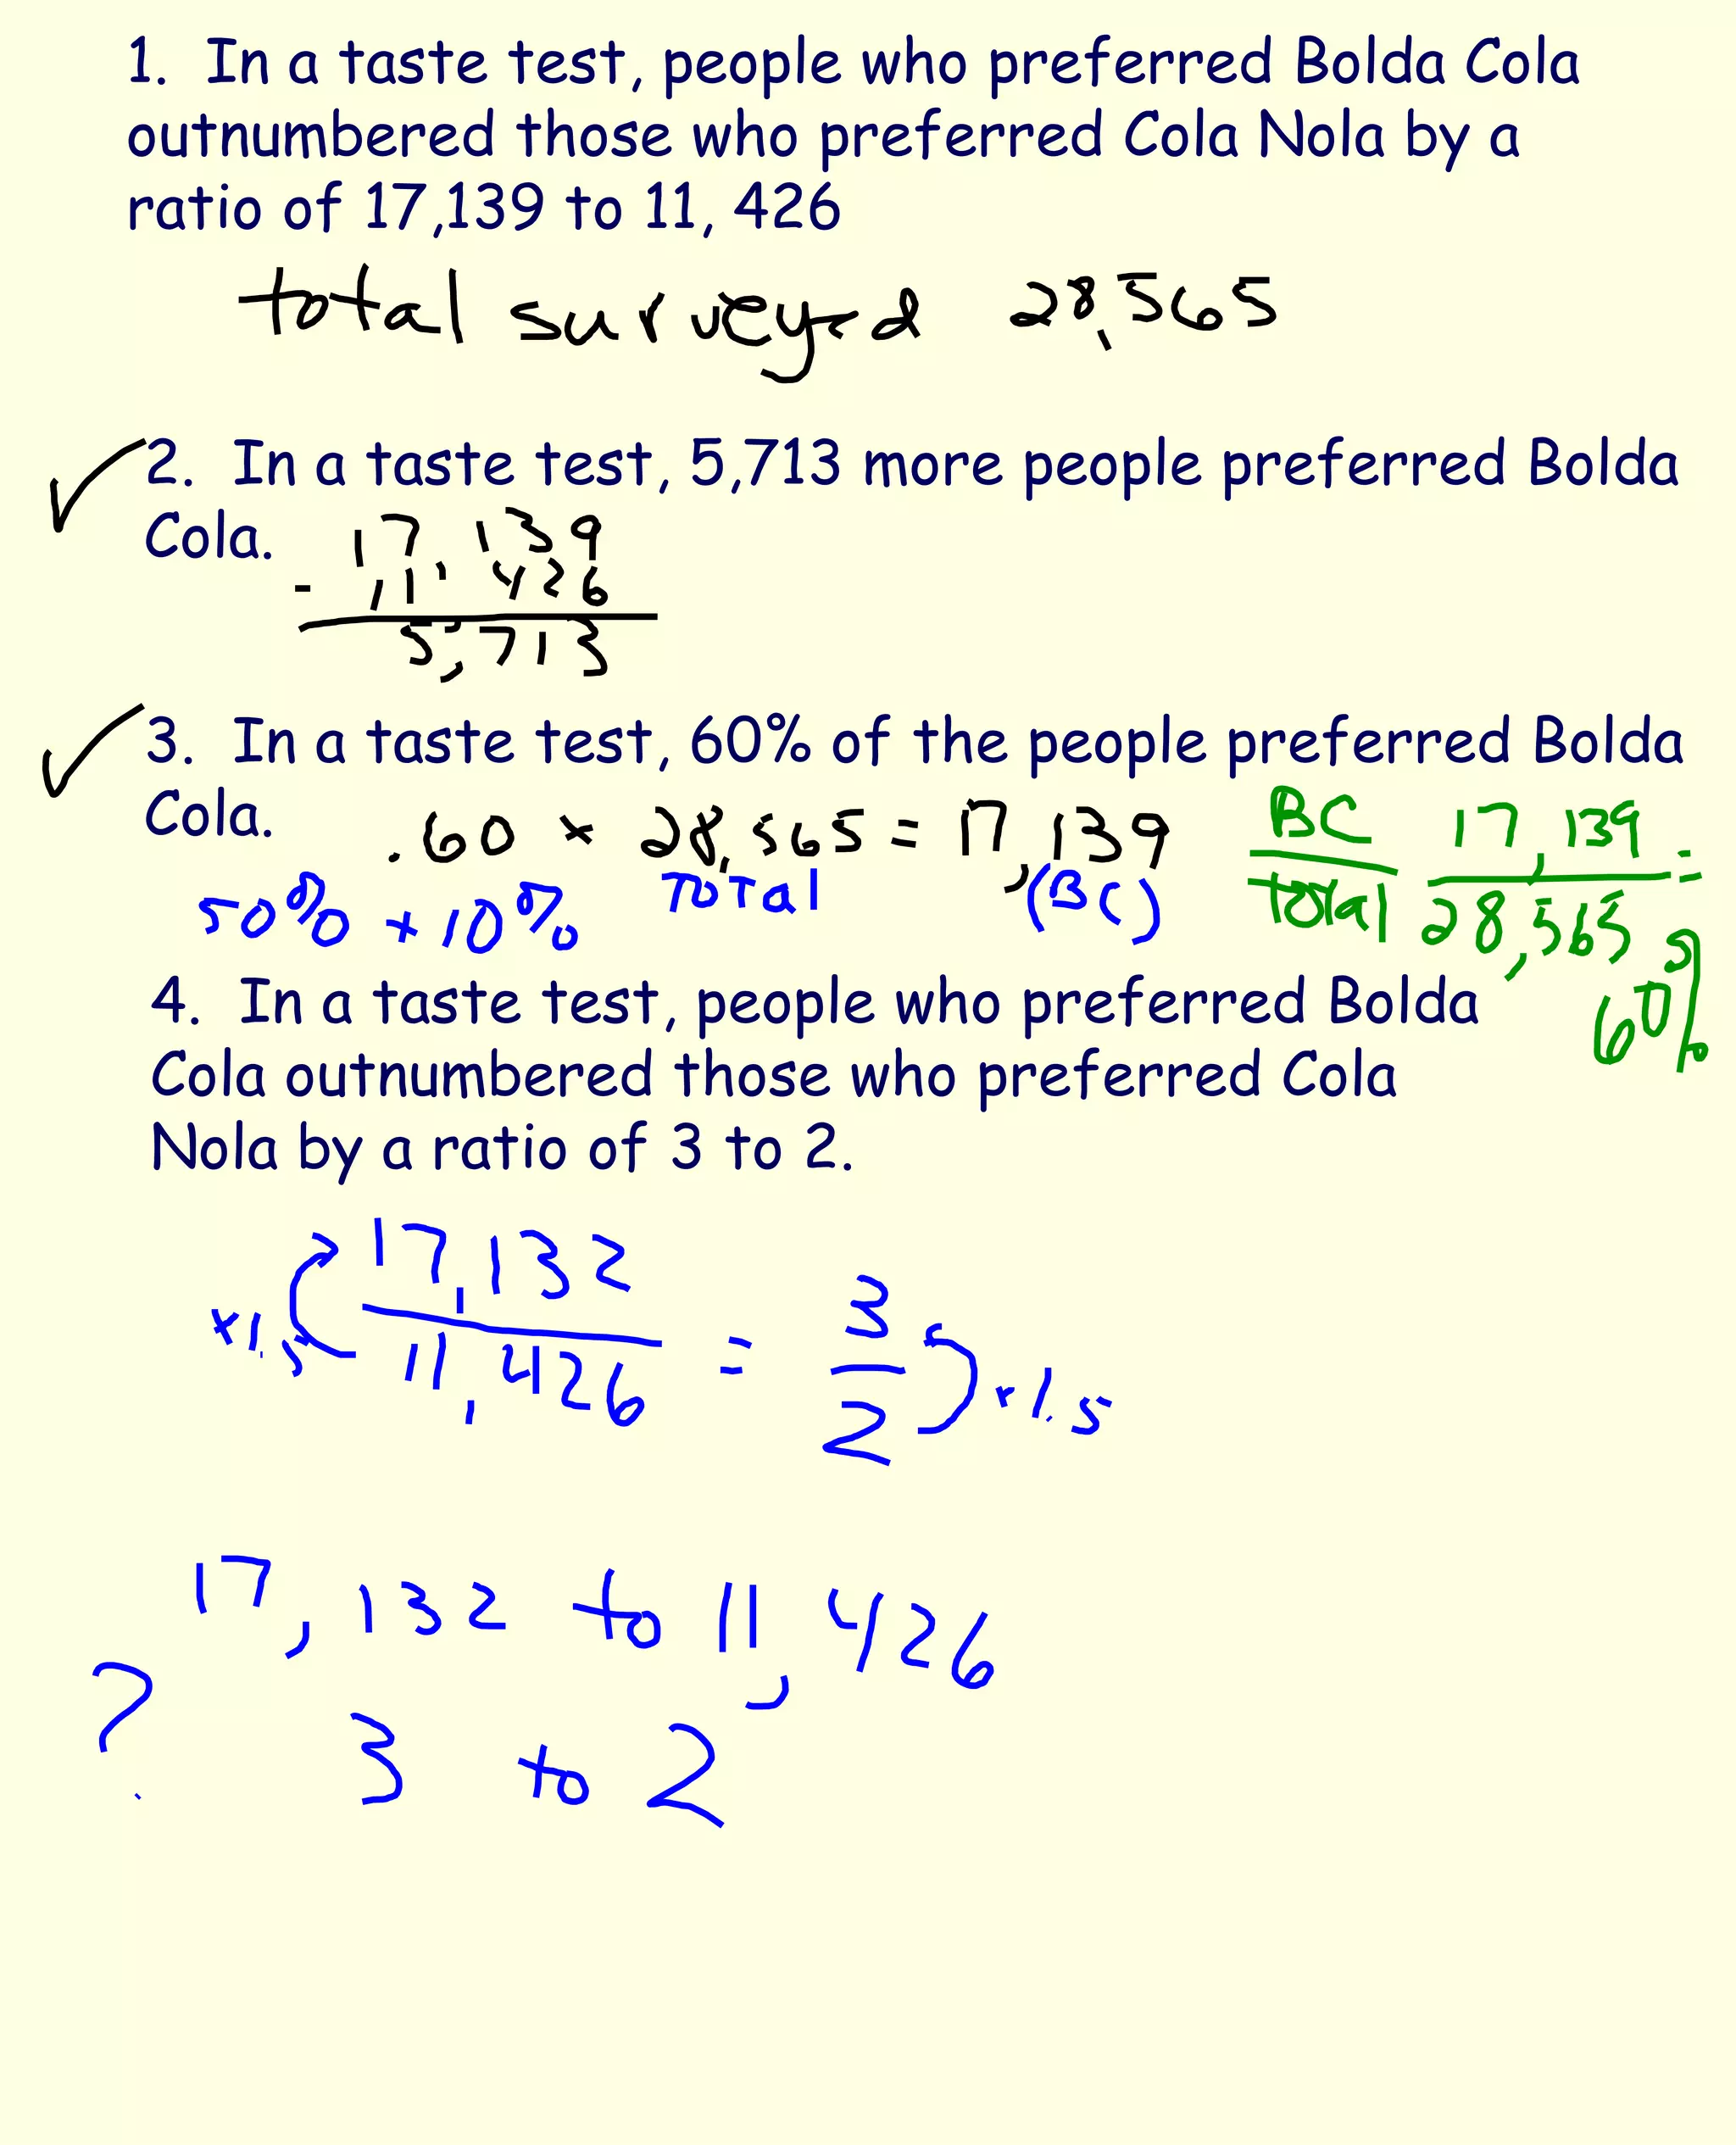 1. In a taste test, people who preferred Bolda Cola
outnumbered those who preferred Cola Nola by a
ratio of 17,139 to 11, 426
total surveyed 28,565
2. In a taste test, 5,713 more people preferred Bolda
Cola.
17,139
- 11,426
5,713
3. In a taste test, 60% of the people preferred Bolda
Cola.
.60 × 28,565 = 17,139
50% + 10% Total (BC)
BC 17,139 =
total 28,565
60%
4. In a taste test, people who preferred Bolda
Cola outnumbered those who preferred Cola
Nola by a ratio of 3 to 2.
17,132 3
×1.5 = ×1.5
11,426 2
17,132 to 11,426
? 3 to 2